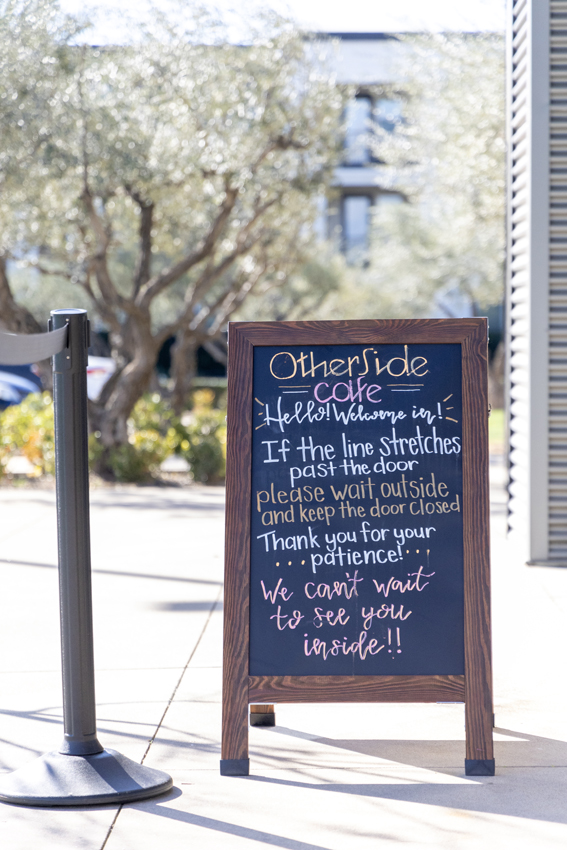 Otherside
cafe
Hello! Welcome in!
If the line stretches
past the door
please wait outside
and keep the door closed
Thank you for your
...patience!...
We can't wait
to see you
inside!!